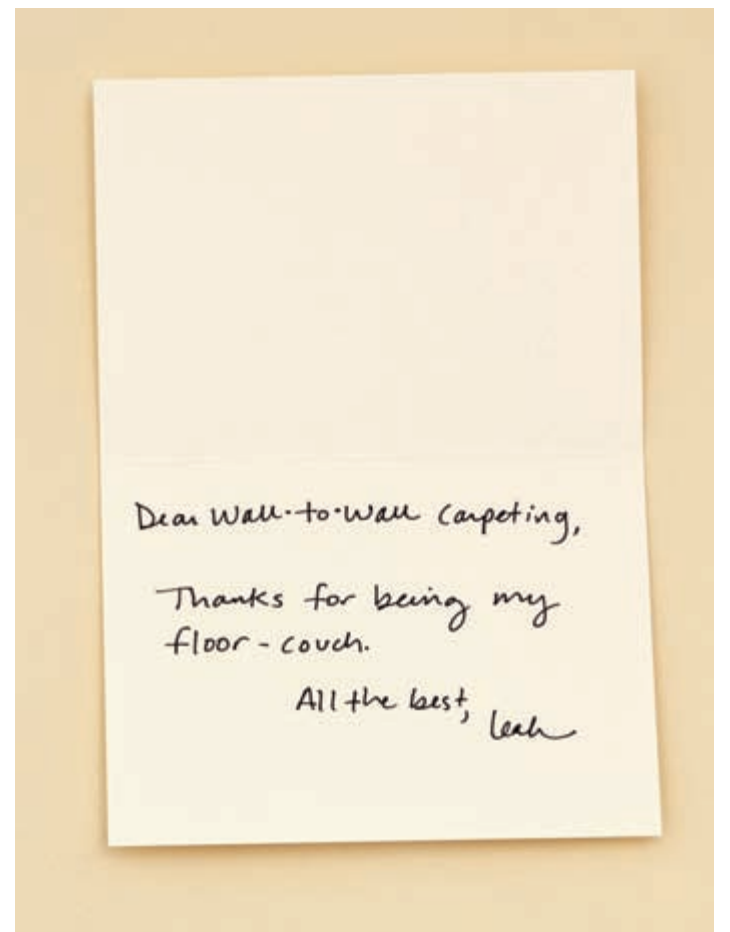 Dear Wall-to-Wall Carpeting,
Thanks for being my
floor-couch.
All the best,
Leah